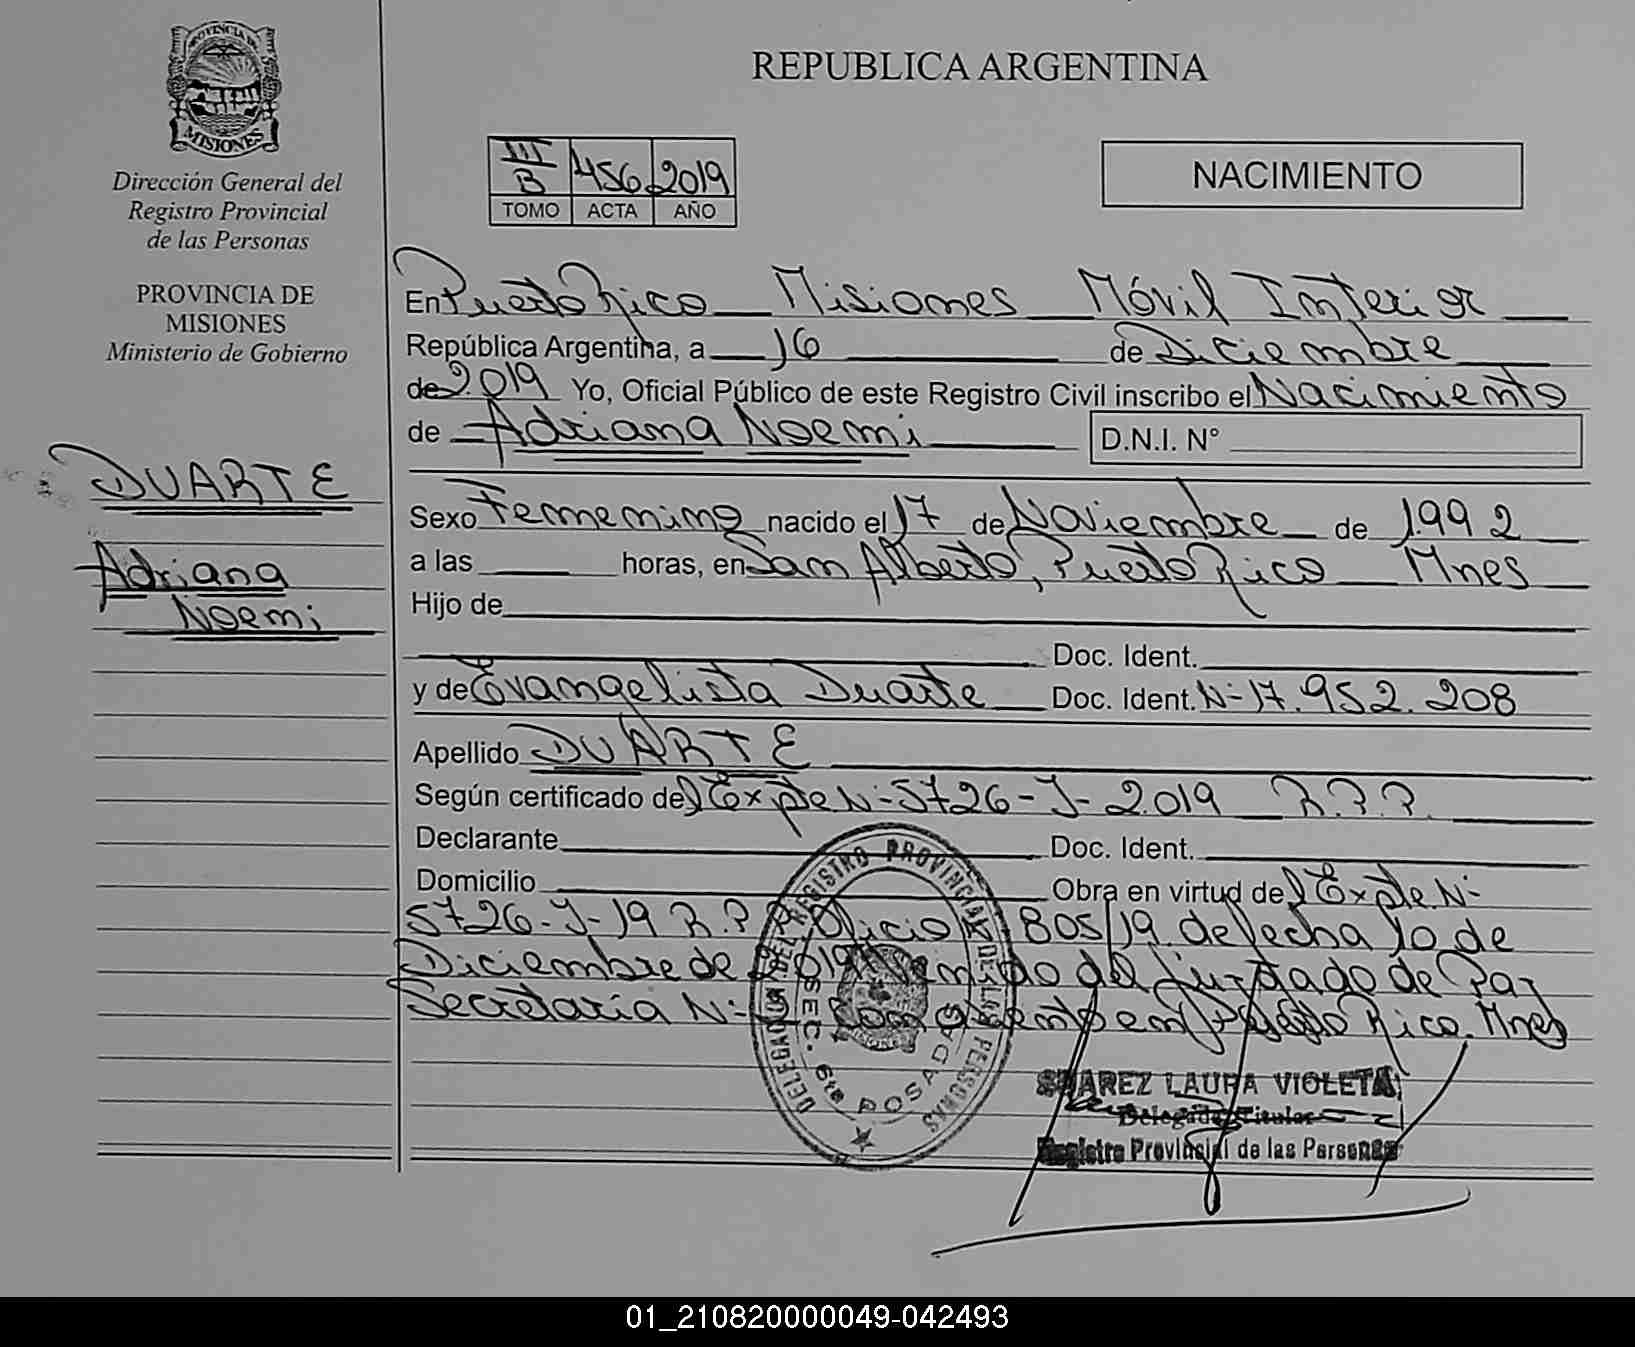 REPUBLICA ARGENTINA
PROVINCIA DE
MISIONES
Dirección General del
Registro Provincial
de las Personas
PROVINCIA DE
MISIONES
Ministerio de Gobierno
DUARTE
Adriana
Noemi
III B 456 2019
TOMO ACTA AÑO
NACIMIENTO
En Puerto Rico Misiones Móvil Interior
República Argentina, a 16 de Diciembre
de 2.019 Yo, Oficial Público de este Registro Civil inscribo el Nacimiento
de Adriana Noemi D.N.I. N°
Sexo Femenino nacido el 17 de Noviembre de 1.992
a las horas, en San Alberto, Puerto Rico Mnes
Hijo de
Doc. Ident.
y de Evangelista Duarte Doc. Ident. N- 17.952.208
Apellido DUARTE
Según certificado del Expte N- 5726-J-2.019 R.P.P.
Declarante Doc. Ident.
Domicilio Obra en virtud del Expte. N-
5726-J-19 R.P.P. Oficio 805/19. de fecha 10 de
Diciembre de 2.019 del Juzgado de Paz
Secretaría N- en Puerto Rico. Mnes
DELEGACION DEL REGISTRO PROVINCIAL DE LAS PERSONAS
SEC. 6ta POSADAS
SUAREZ LAURA VIOLETA
Delegada Titular
Registro Provincial de las Personas
01_210820000049-042493